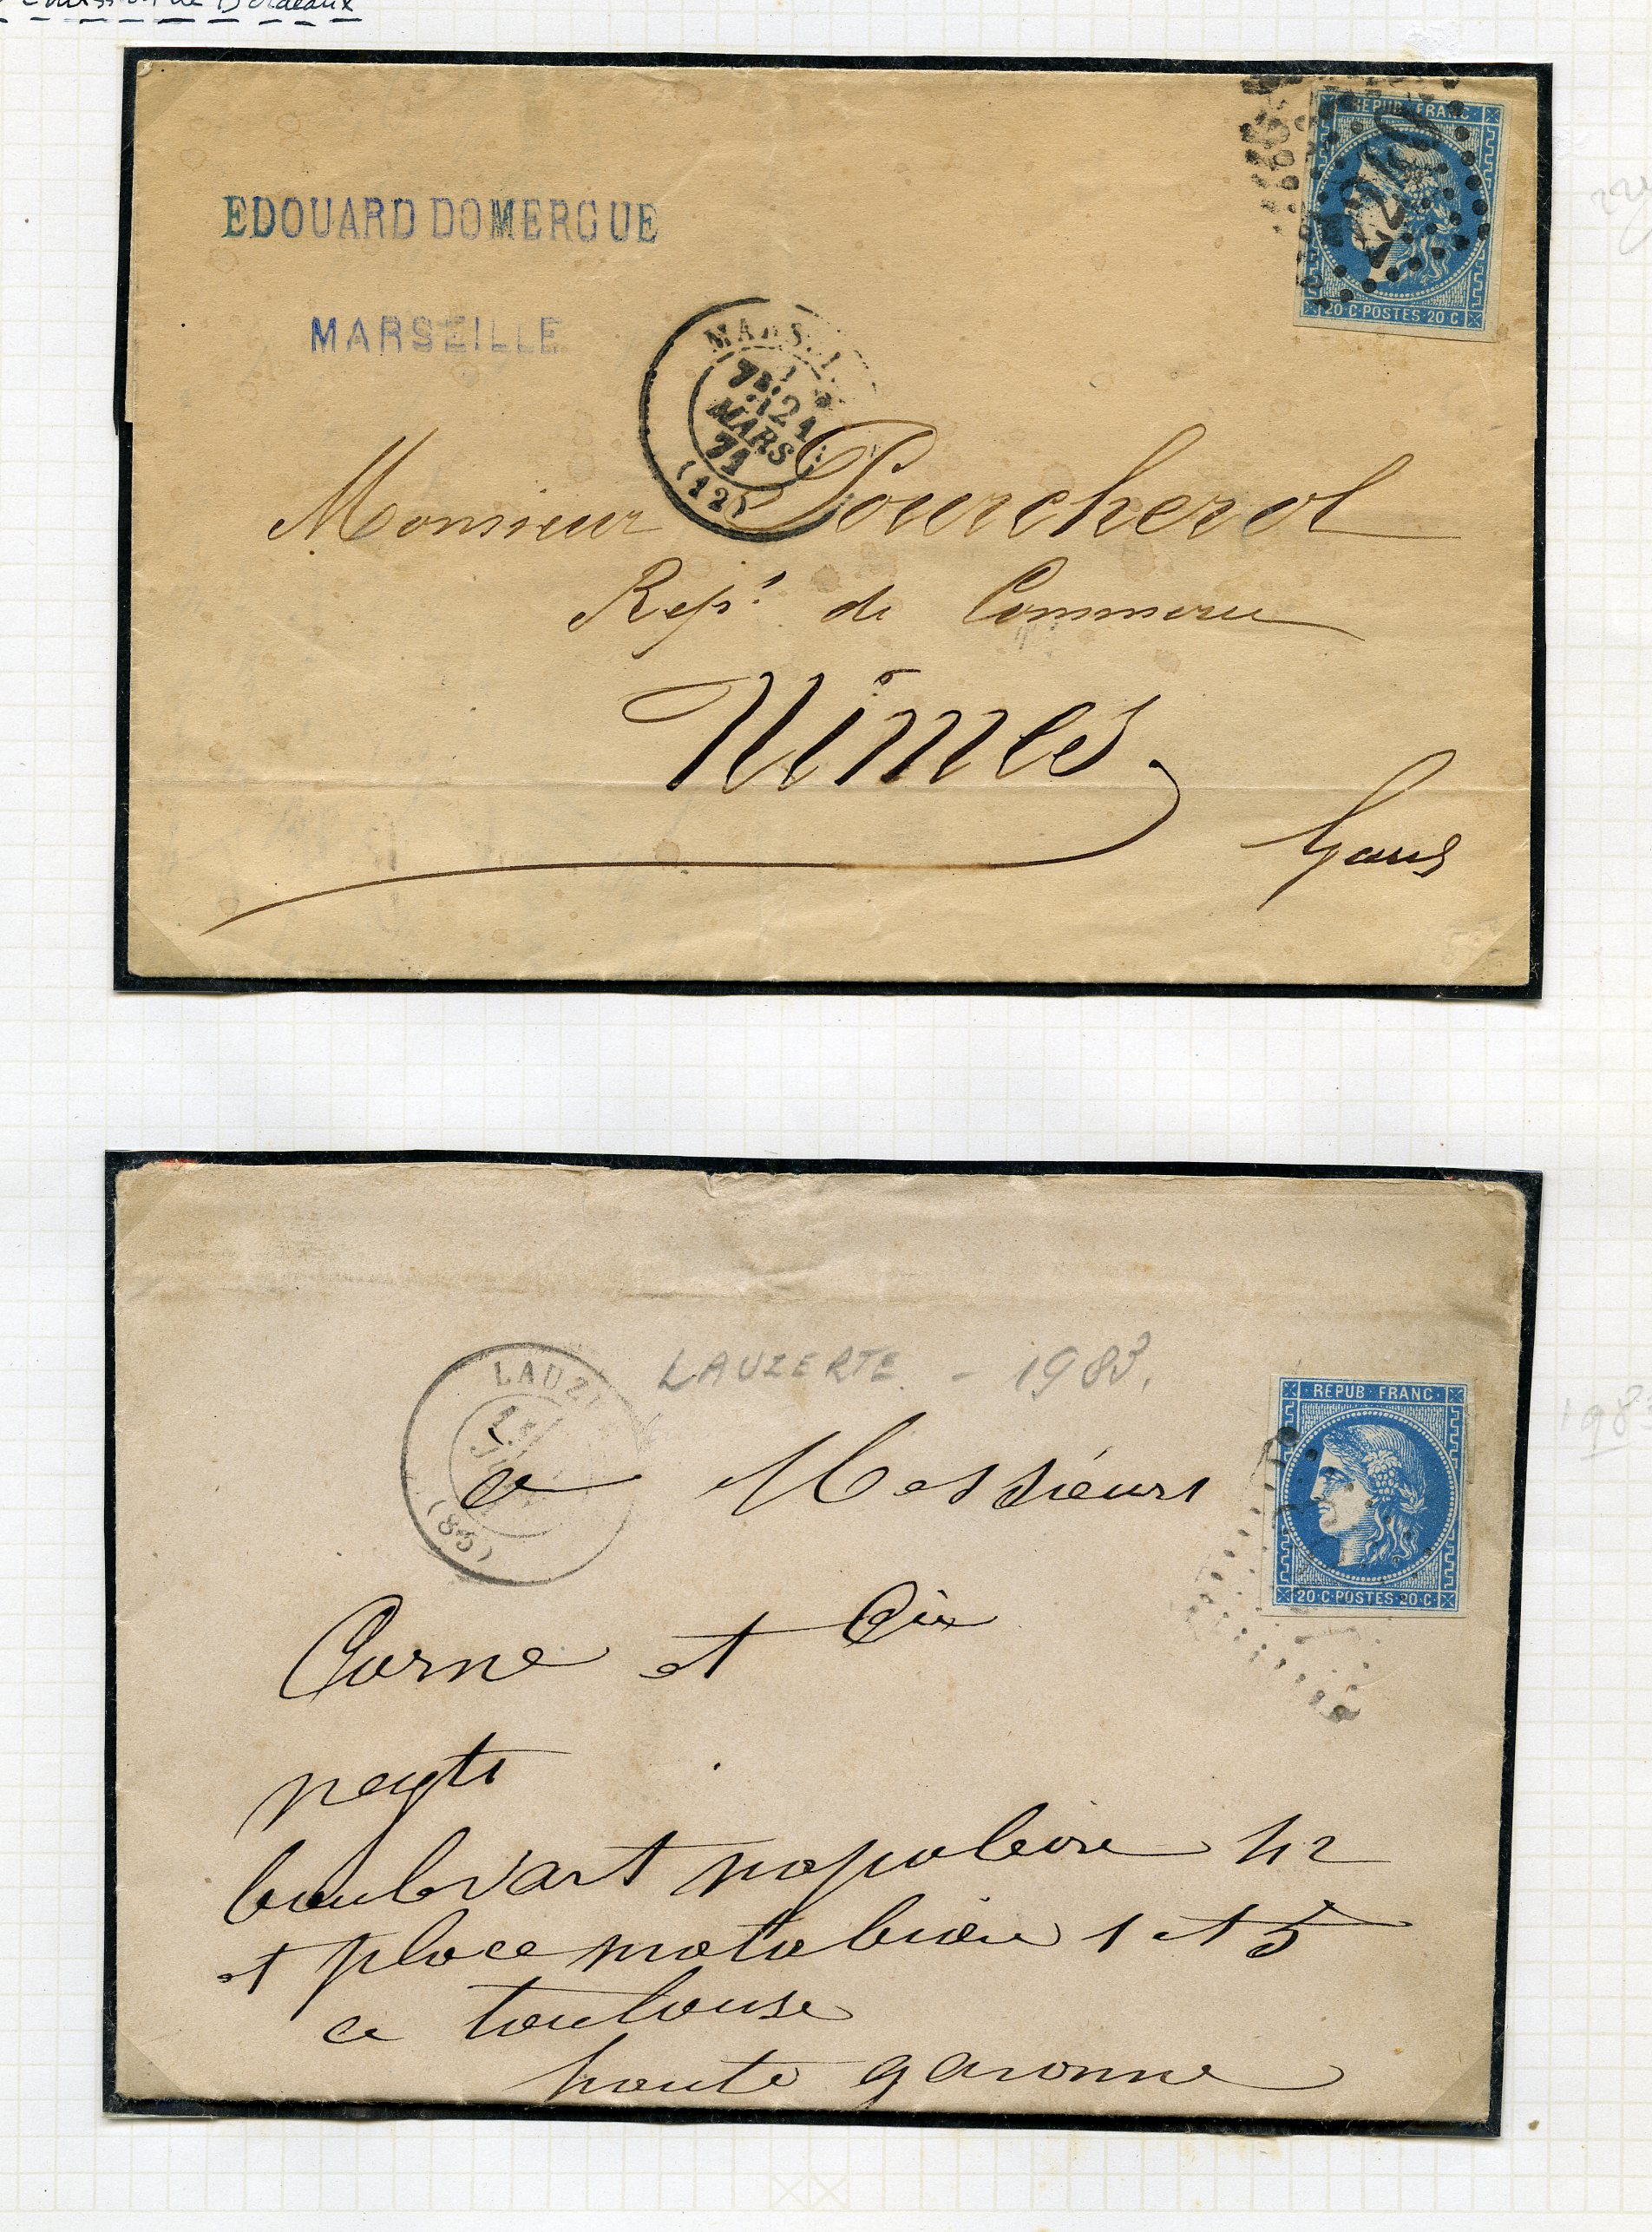 Emission de Bordeaux
REPUB FRANC
2240
20 C POSTES 20 C
EDOUARD DOMERGUE
MARSEILLE
MARS
21
MARS
71
(12)
Monsieur Pourcherol
Rept. de Commerce
Nîmes
Gard
LAUZERTE - 1983.
LAUZ
(83)
REPUB FRANC
20 C POSTES 20 C
a Messieurs
Corne et Cie
negts
boulevart napoleon 42
et place matabiau 1 et 5
a toulouse
haute garonne